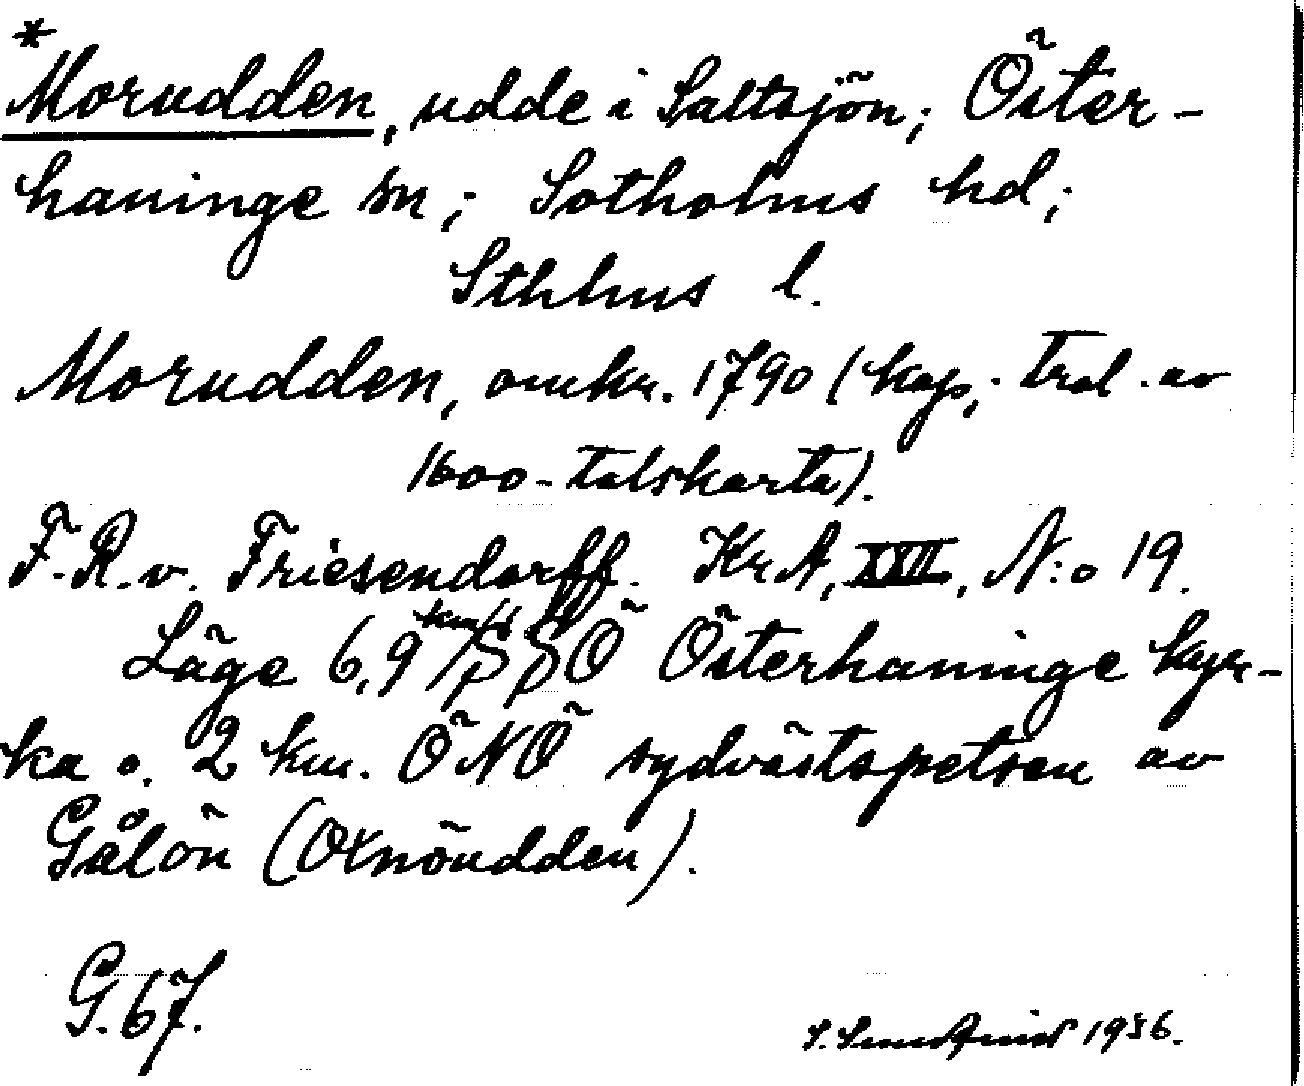 *
Morudden, udde i Saltsjön; Öster-
haninge sn; Sotholms hd;
Sthlms l.
Morudden, omkr. 1790 (kop. trol. av
1600-talskarta).
F.R.v. Friesendorff. KrA, XXII, N:o 19.
km
Läge 6,9 SSÖ Österhaninge kyr-
ka o. 2 km. ÖNÖ sydvästspetsen av
Gålön (Oxnöudden).
G.67.
S. 1936.